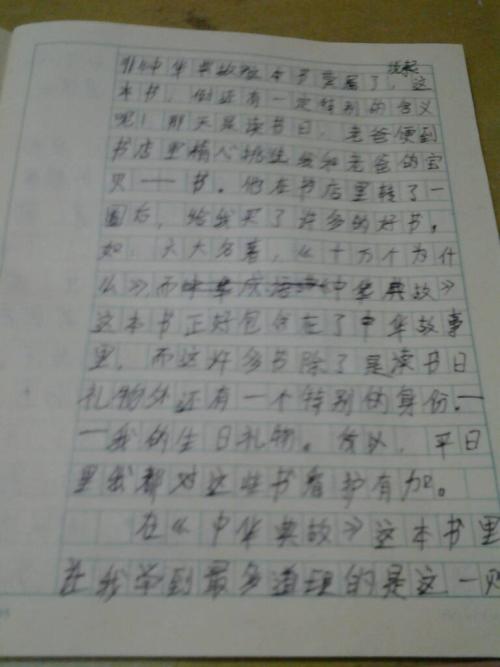 说起
《中华典故》今　了，这
本书，倒还有一定特别的含义
呢！那天是读书日，老爸便到
书店里精心挑选我和老爸的宝
贝——书。他在书店里转了一
圈后，给我买了许多的好书。
如：六大名著，《十万个为什
么》，而《中华典故》
这本书正好包含在了中华故事
里，而这好多书除了是读书日
礼物外还有一个特别的身份.一
一我的生日礼物。所以，平日
里我都对这些书看护有加。
在《中华典故》这本书里
让我学到最多道理的是这一则